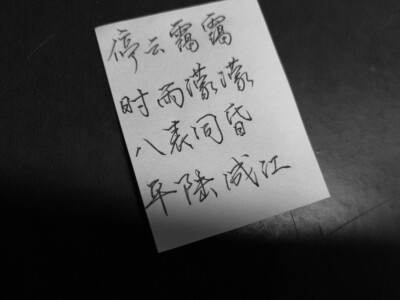 停云霭霭
时雨濛濛
八表同昏
平陆成江